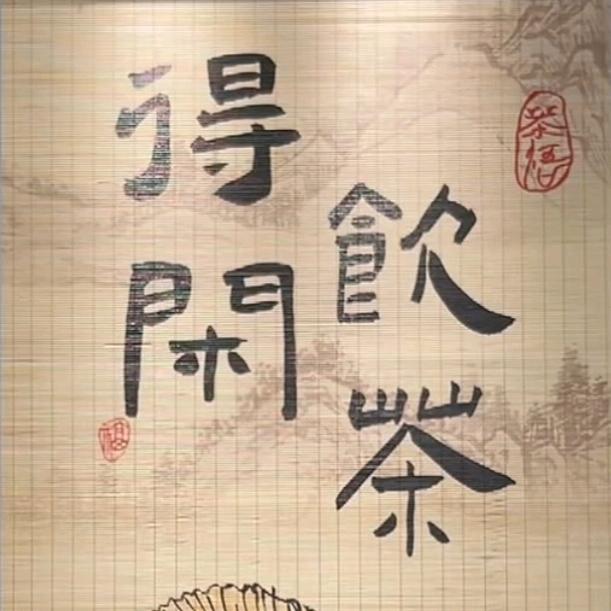 得閑
飲茶
茶悟